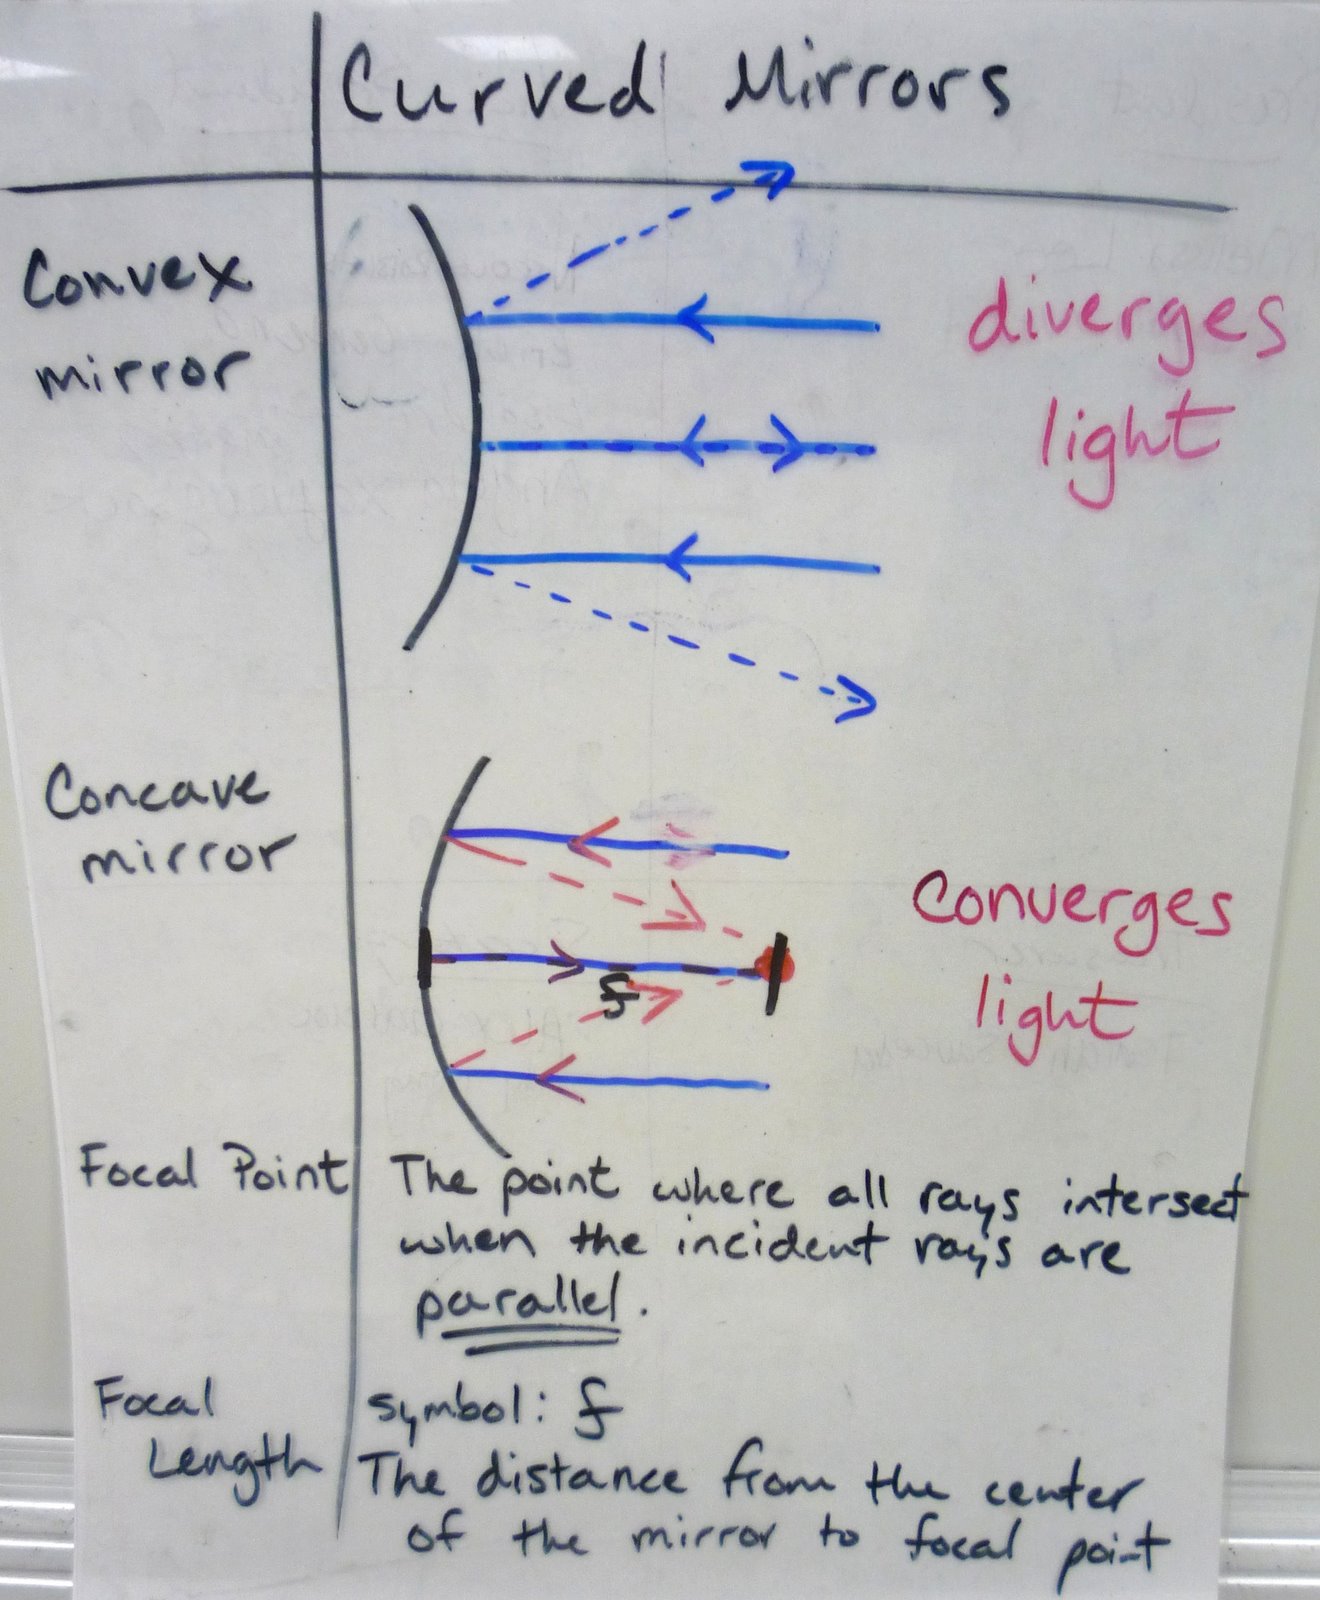 Curved Mirrors
Convex
mirror
diverges
light
Concave
mirror
f
Converges
light
Focal Point
The point where all rays intersect
when the incident rays are
parallel.
Focal
Length
symbol: f
The distance from the center
of the mirror to focal point